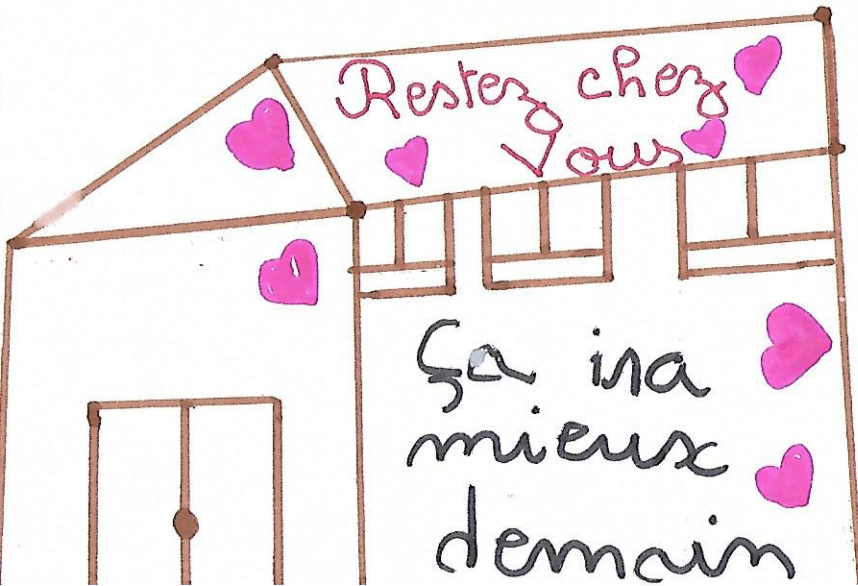 Restez chez
Vous
Ça ira
mieux
demain